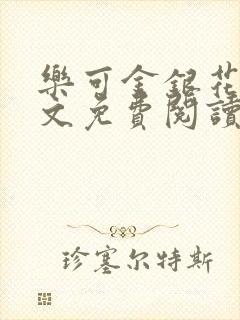 樂可金銀花
文免費閱讀
珍塞尔特斯